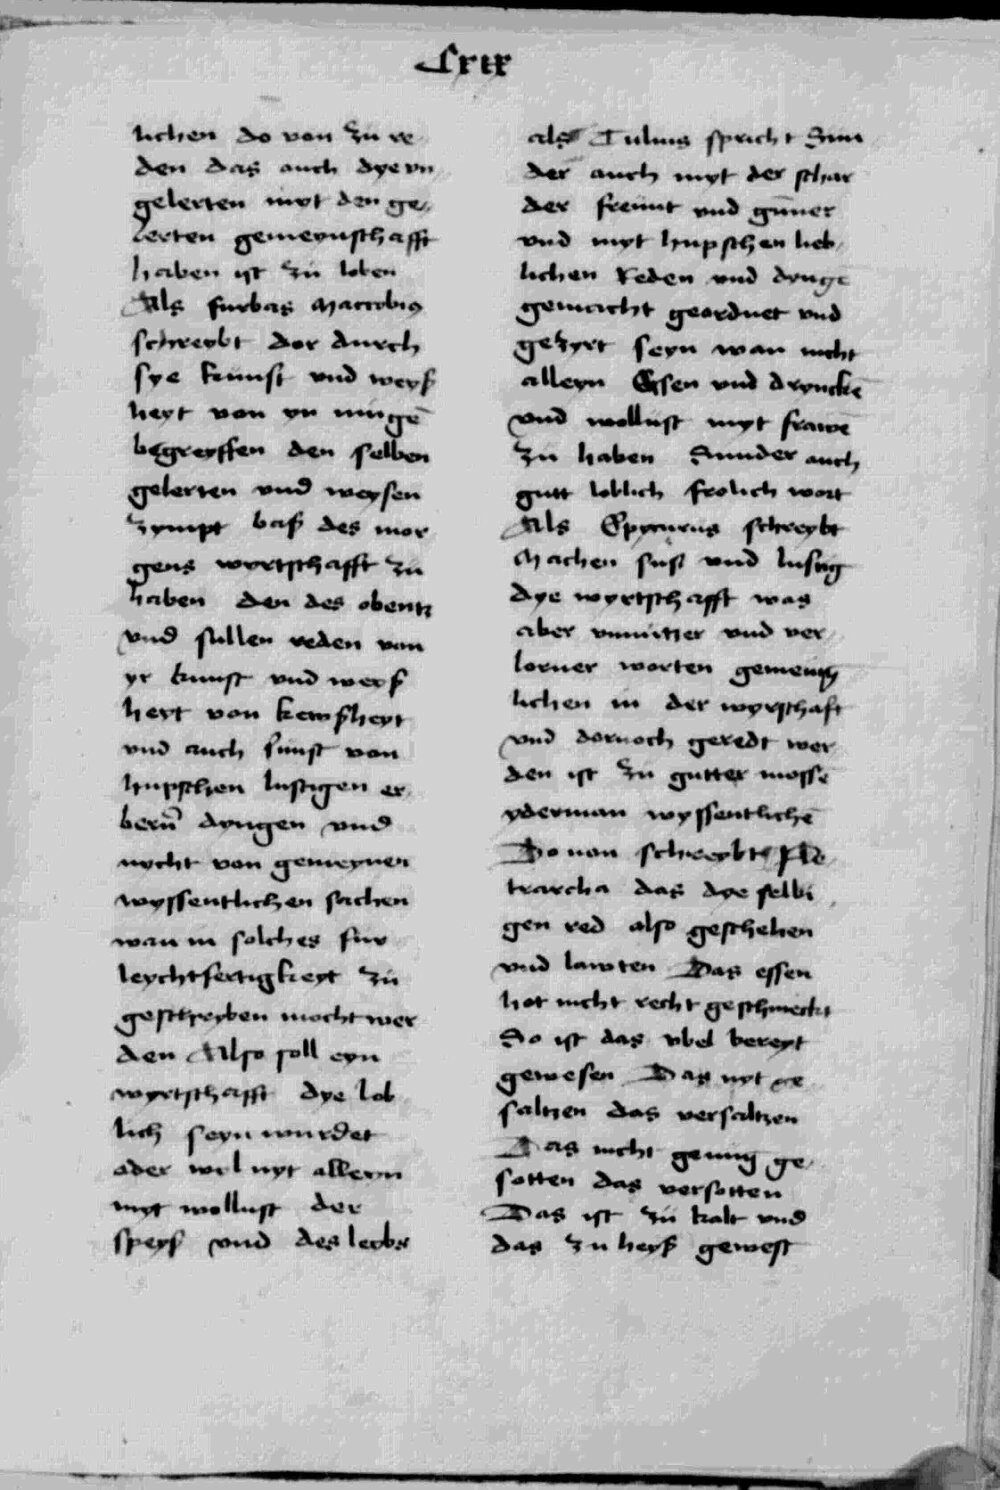 Cxix
lichen do von zu re
den das auch dye vn
gelerten myt den ge
lerten gemeynschafft
haben ist zu loben
Als furbas Macrobius
schreybt dor durch
sye kunst vnd weyß
heyt von yn mugē
begreyffen den selben
gelerten vnd weysen
zympt baß des mor
gens wyrtschafft zu
haben den des obentz
vnd sullen reden von
yr kunst vnd weyß
heyt von kewßheyt
vnd auch sunst von
hupschen lustigen er
bern̄ dyngen vnd
nycht von gemeynen
wyssentlichen sachen
wan in solches fur
leychtfertigkeyt zu
geschreyben mocht wer
den Also soll eyn
wyrtschafft dye lob
lich seyn wurdet
oder wel nyt alleyn
myt wollust der
speyß vnd des leybs
als Tulius spricht Sun
der auch myt der schar
der freunt vnd gunner
vnd myt hupschen lieb
lichen Reden vnd dyngē
gemacht geordnet vnd
gezyrt seyn wan nicht
alleyn Essen vnd drynckē
vnd wollust myt frawē
zu haben Sunder auch
gutt loblich frolich wort
Als Epycurus schreybt
Machen suß vnd lustig
dye wyrtschafft was
aber vnnutzer vnd ver
lorner worten gemenig
lichen in der wyrtschaft
vnd dornoch geredt wer
den ist zu gutter mossē
yderman wyssentlichē
Do von schreybt Pe
trarcha das dye selbi
gen red also geschehen
vnd lawten Das essen
hot nicht recht geschmeckt
So ist das vbel bereyt
gewesen Das nyt ge
saltzen das versaltzen
Das nicht genug ge
sotten das versotten
Das ist zu kalt vnd
das zu heyß gewest